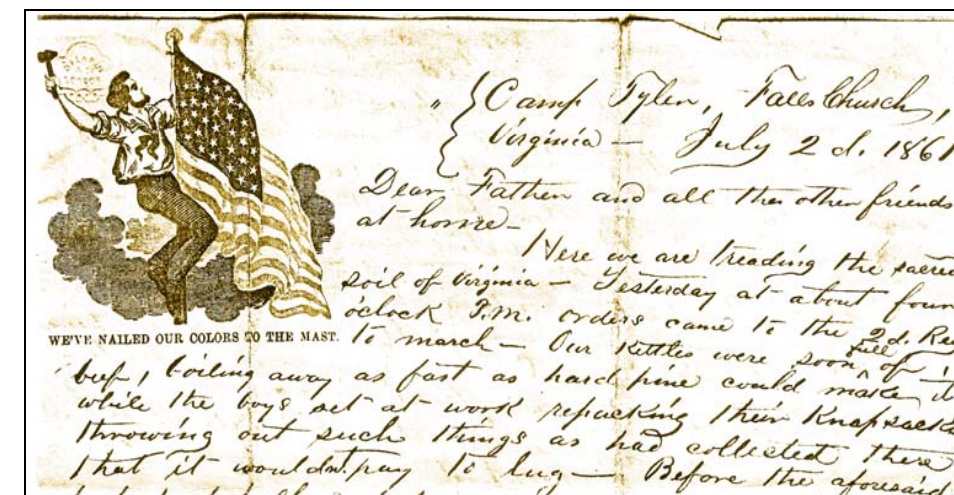 " Camp Tyler, Falls Church,
Virginia — July 2d. 1861
Dear Father and all the other friends
at home —
Here we are treading the sacred
soil of Virginia — Yesterday at about four
o'clock P.M. orders came to the 2d. Reg
WE'VE NAILED OUR COLORS TO THE MAST.
to march — Our kettles were soon full of
beef, boiling away as fast as hard pine could make it
while the boys set at work repacking their knapsacks
throwing out such things as had collected there
that it wouldn't pay to lug — Before the aforesaid